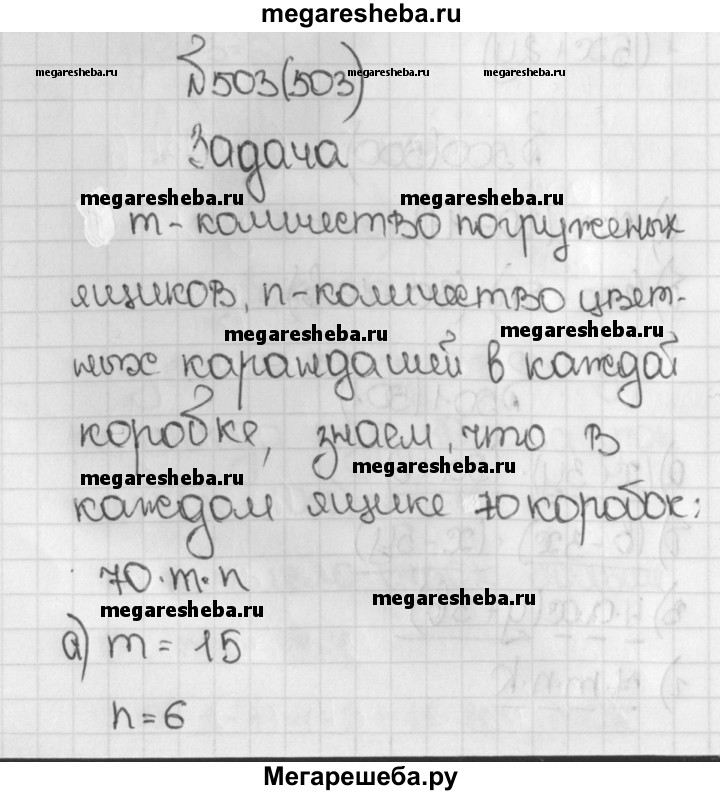 megaresheba.ru
№503(503)
megaresheba.ru megaresheba.ru megaresheba.ru
Задача
megaresheba.ru megaresheba.ru
m - количество погруженых
ящиков, n - количество цвет-
megaresheba.ru megaresheba.ru
ных карандашей в каждой
коробке, знаем, что в
megaresheba.ru megaresheba.ru
каждом ящике 70 коробок:
70·m·n
megaresheba.ru megaresheba.ru
а) m = 15
n = 6
Мегарешеба.ру